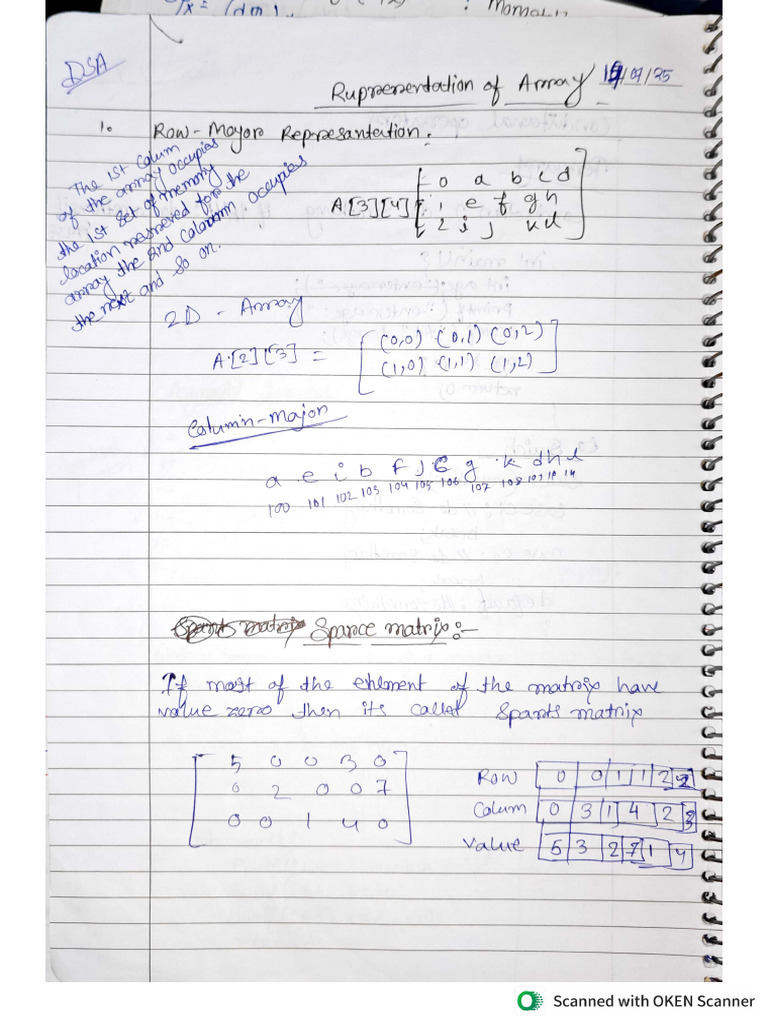 DSA
Rupresentation of Array
/07/25
1. Row-Mayoro Represantation:
The 1st Colum
of the array occupies
the 1st Set of memory
location reserved for the
array the 2nd Colaumn occupies
the next and so on.
0 a b c d
A[3][4] 1 e f g h
2 i j k l
2D - Array
A.[2][3] = (0,0) (0,1) (0,2)
(1,0) (1,1) (1,2)
Column-Major
a e i b f J C g k d h l
100 101 102 103 104 105 106 107 108 109 10 14
Sparce matrix:-
If most of the ehlement of the matrix have
value zero then its called Spants matrix
5 0 0 3 0
0 2 0 0 7
0 0 1 4 0
Row 0 0 1 1 2 2
Colum 0 3 1 4 2 3
Value 5 3 2 7 1 4
Scanned with OKEN Scanner